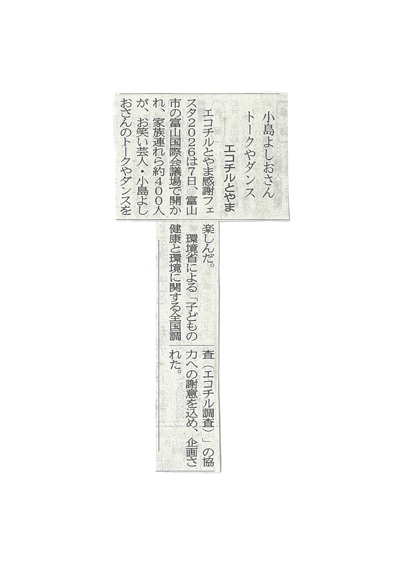 小島よしおさん
トークやダンス
エコチルとやま
エコチルとやま感謝フェ
スタ2026は7日、富山
市の富山国際会議場で開か
れ、家族連れら約400人
が、お笑い芸人・小島よし
おさんのトークやダンスを
楽しんだ。
環境省による「子どもの
健康と環境に関する全国調
査(エコチル調査)」の協
力への謝意を込め、企画さ
れた。